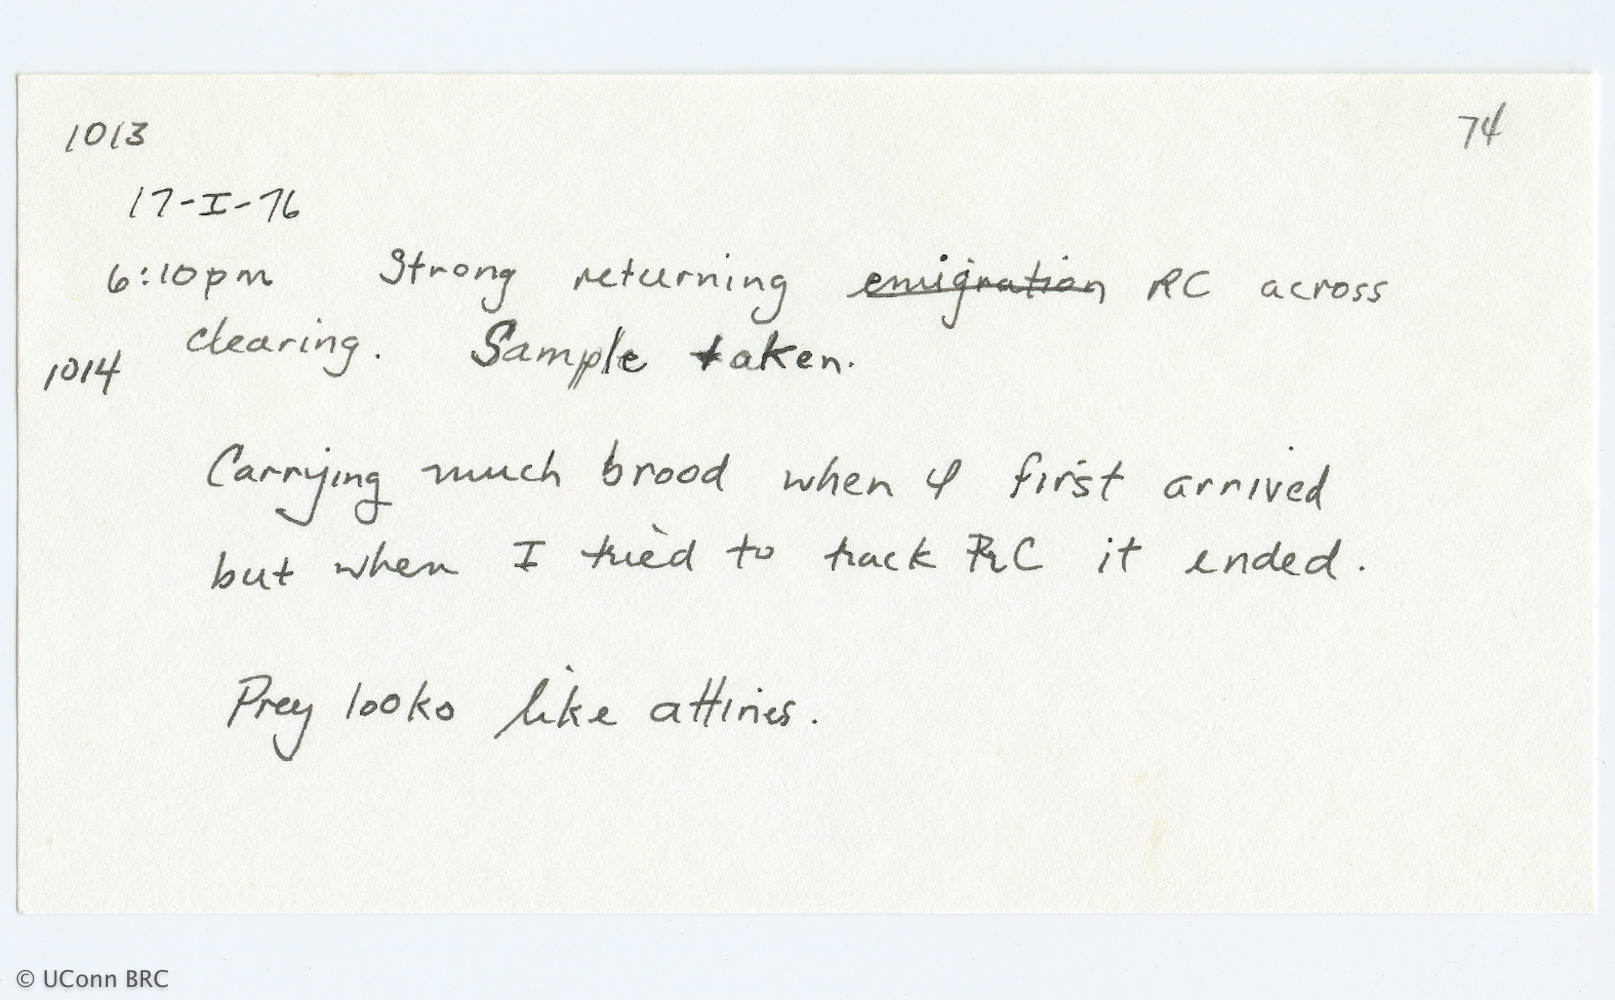 1013
74
17-I-76
6:10pm Strong returning emigration RC across
clearing. Sample taken.
1014
Carrying much brood when I first arrived
but when I tried to track RC it ended.
Prey looks like attines.
© UConn BRC